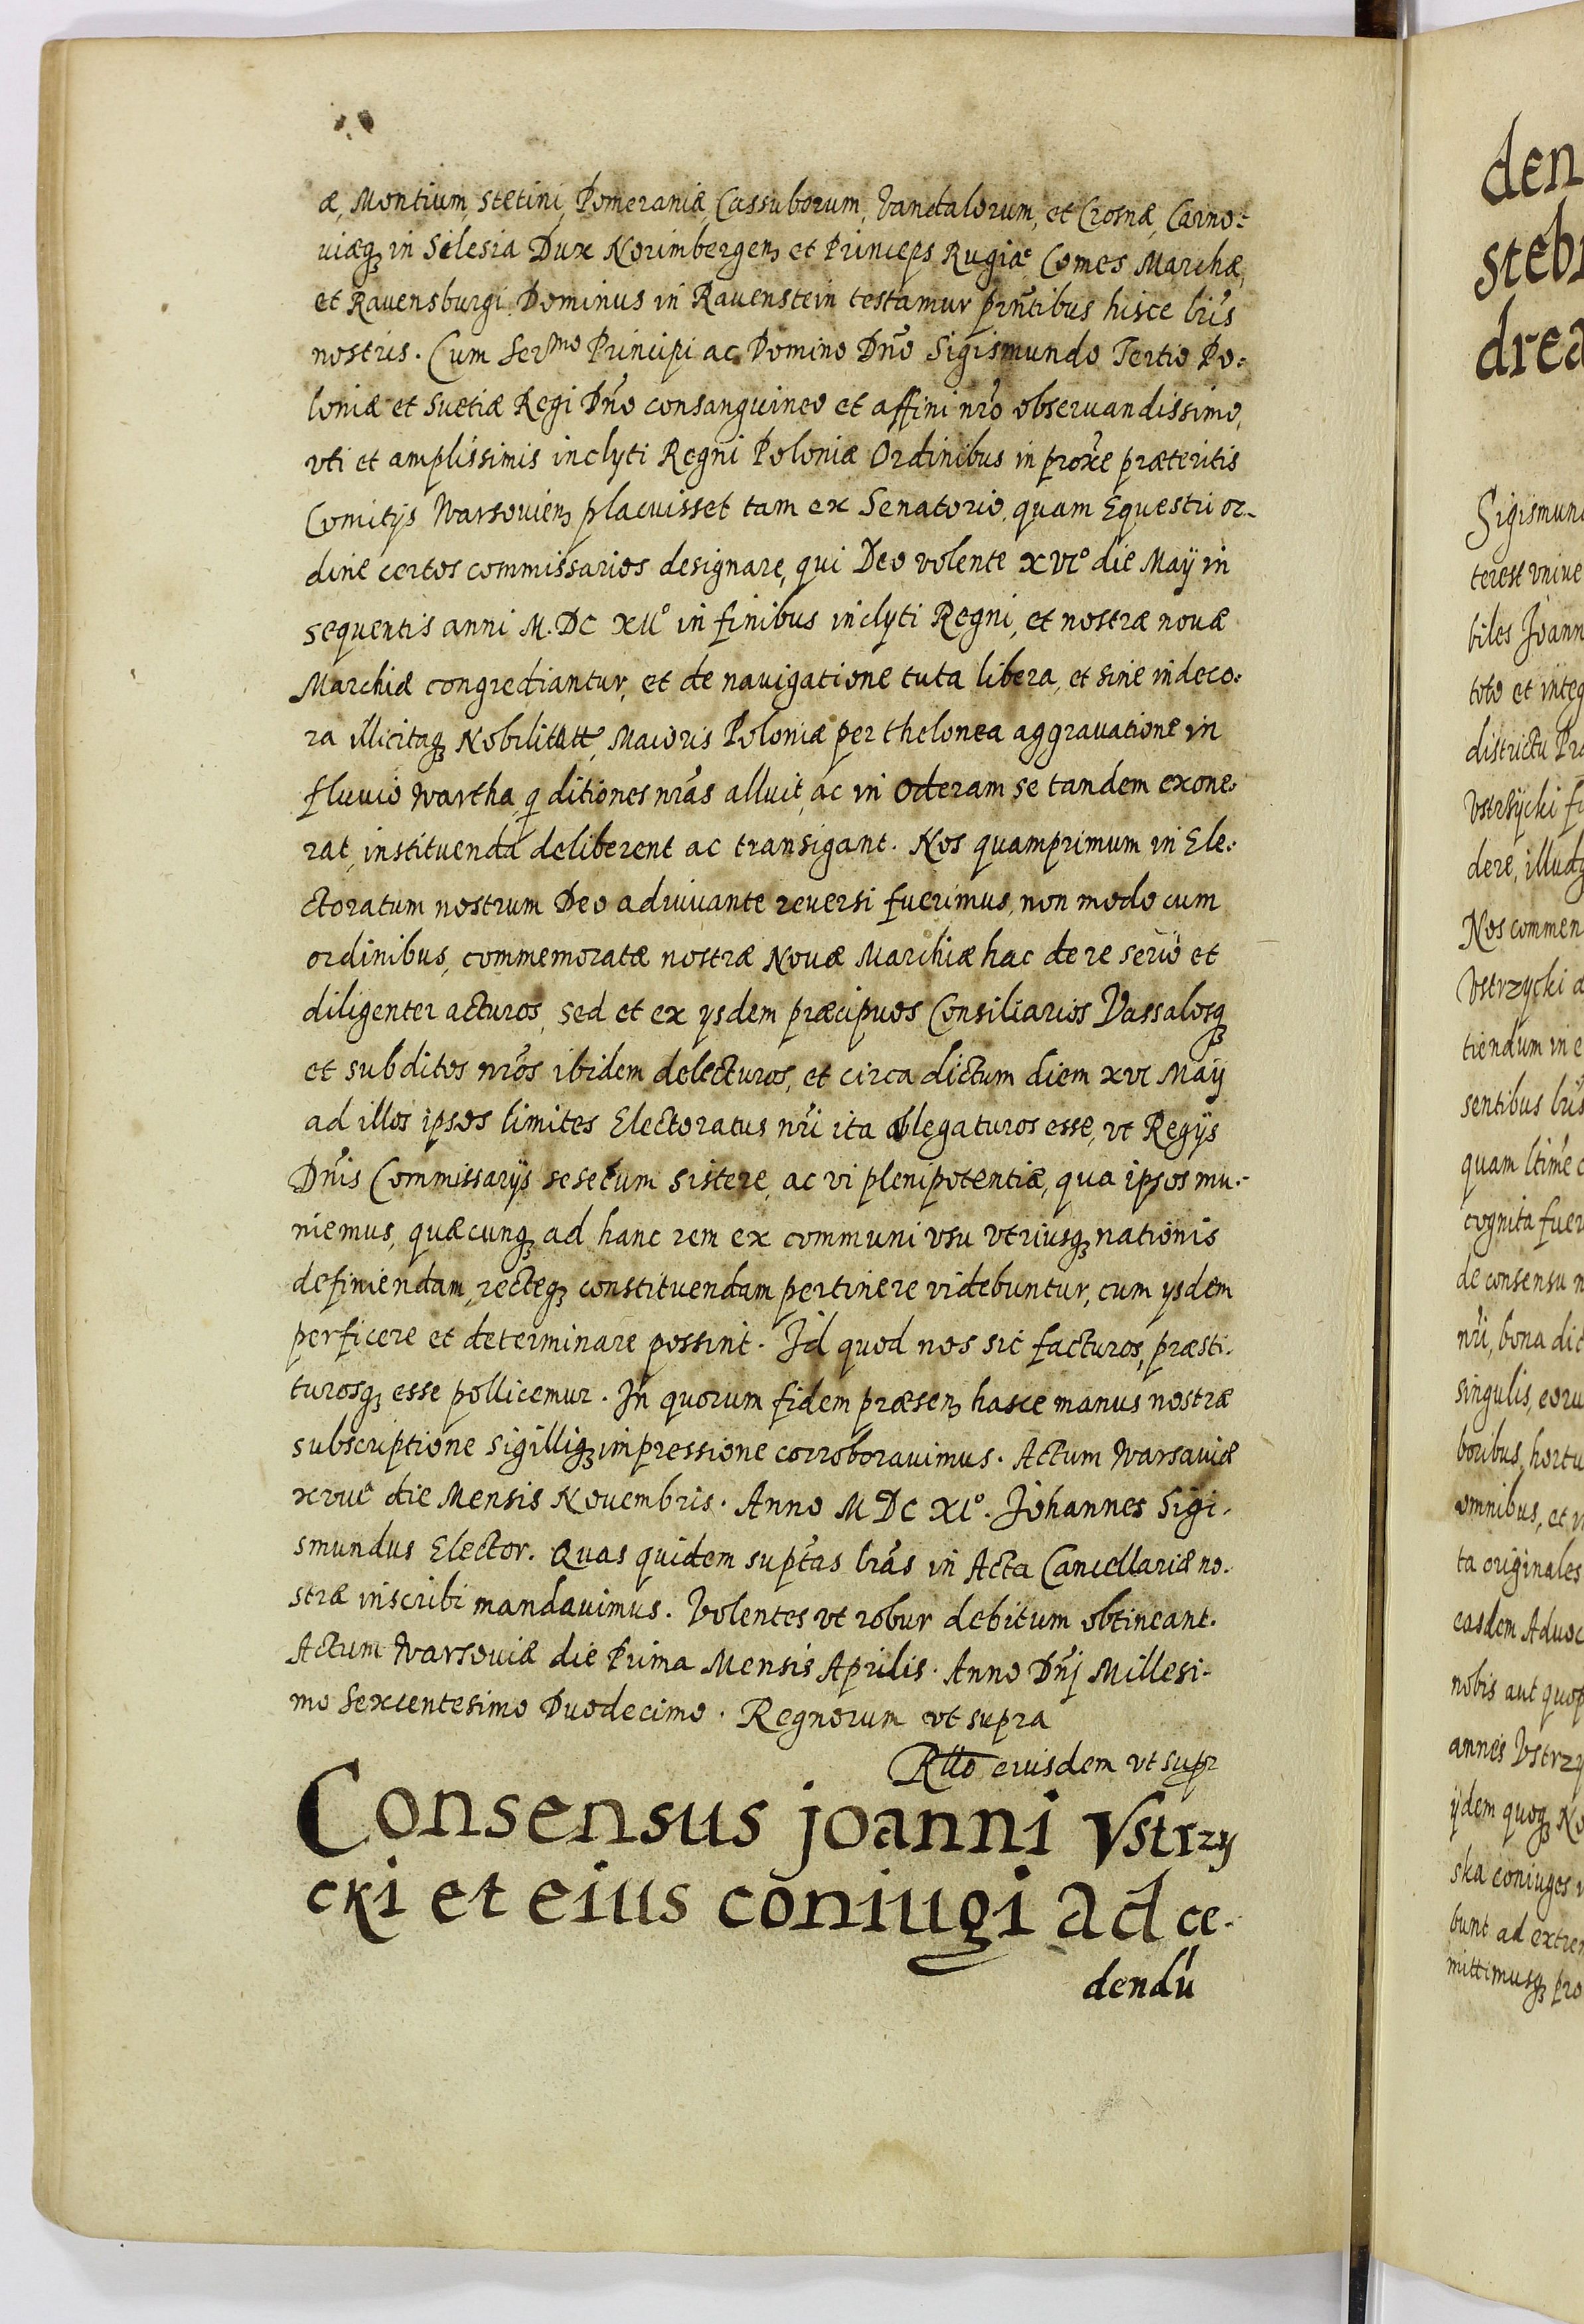 æ, Montium, Stetini, Pomeraniæ, Cassuborum, Vandalorum, et Crosnæ, Carno-
uiæq3 in Silesia Dux Norimbergen3 et Princeps Rugiæ Comes Marchæ,
et Ravensburgi. Dominus in Rauenstein testamur pn̄tibus hisce lr̄is
nostris. Cum Ser^mo Principi ac Domino Dn̄o Sigismundo Tertio Po-
loniæ et Suetiæ Regi Dn̄o consanguineo et affini nr̄o obseruandissimo,
vti et amplissimis inclyti Regni Poloniæ Ordinibus in prox̄e præteritis
Comitijs Warsouien3 placuisset tam ex Senatorio, quam Equestri or-
dine certos commissarios designare, qui Deo volente XVI° die Maÿ in
sequentis anni M.DC XII° in finibus inclyti Regni, et nostræ nouæ
Marchiæ congrediantur, et de nauigatione tuta libera, et sine indeco-
ra illicitaq3 Nobilitatt, Maioris Poloniæ per thelonea aggrauatione in
fluuio Wartha, q ditiones nr̄as alluit, ac in Oderam se tandem exone-
rat, instituenda deliberent ac transigant. Nos quamprimum in Ele-
ctoratum nostrum Deo adiuuante reuersi fuerimus, non modo cum
ordinibus, commemoratæ nostræ Nouæ Marchiæ hac de re serio et
diligenter acturos, sed et ex ysdem præcipuos Consiliarios Vassalosq3
et subditos nr̄os ibidem delecturos, et circa dictum diem XVI Maij
ad illos ipsos limites Electoratus nr̄i ita ablegaturos esse, vt Regijs
Dn̄is Commissarijs sese cum sistere, ac vi plenipotentiæ, qua ipsos mu-
niemus, quæcunq3 ad hanc rem ex communi vsu vtriusq3 nationis
definiendam, recteq3 constituendam pertinere videbuntur, cum ysdem
perficere et determinare possint. Id quod nos sic facturos, præsti-
turosq3 esse pollicemur. In quorum fidem præsen3 hasce manus nostræ
subscriptione sigilliq3 impressione corroborauimus. Actum Warsauiæ
die Mensis Nouembris. Anno M DC XI°. Johannes Sigi-
smundus Elector. Quas quidem supt̄as lr̄as in Acta Cancellariæ no-
stræ inscribi mandauimus. Volentes vt robur debitum obtineant.
Actum Warsouiæ die Prima Mensis Aprilis. Anno Dn̄j Millesi-
mo Sexcentesimo Duodecimo. Regnorum vt supra
Rtto eiusdem vt supr
Consensus joanni Vstrzy
cki et eius coniugi ad ce-
dendū
den
steb
drea
Sigismun
terest vniue
biles Joann
toto et integ
districtu Pr
Vstrzÿcki
dere, illudq
Nos commen
Vstrzycki
tiendum in e
sentibus lr̄is
quam ltīme c
cognita fuer
de consensu n
nr̄i, bona dic
singulis, eoru
boribus, hortu
omnibus, et
ta originales
easdem Aduoc
nobis aut quop
annes Vstrzy
ijdem quoq3 No
ska coniuges
bunt ad extre
mittimusq3 pro